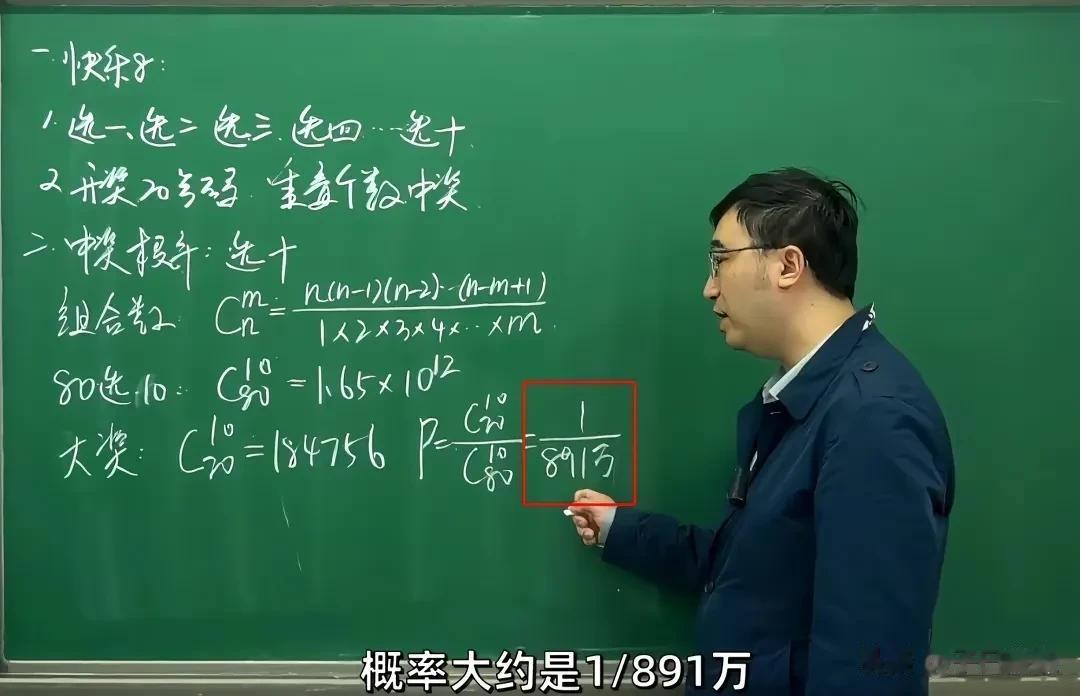 一.快乐8:
1.选一、选二 选三.选四…选十
2 开奖20号码. 重叠个数中奖
二.中奖概率:选十
组合数 C_n^m = n(n-1)(n-2)…(n-m+1) / 1×2×3×4×…×m
80选10: C_80^10 = 1.65×10^12
大奖: C_20^10 = 184756 P = C_20^10 / C_80^10 = 1/891万
概率大约是1/891万